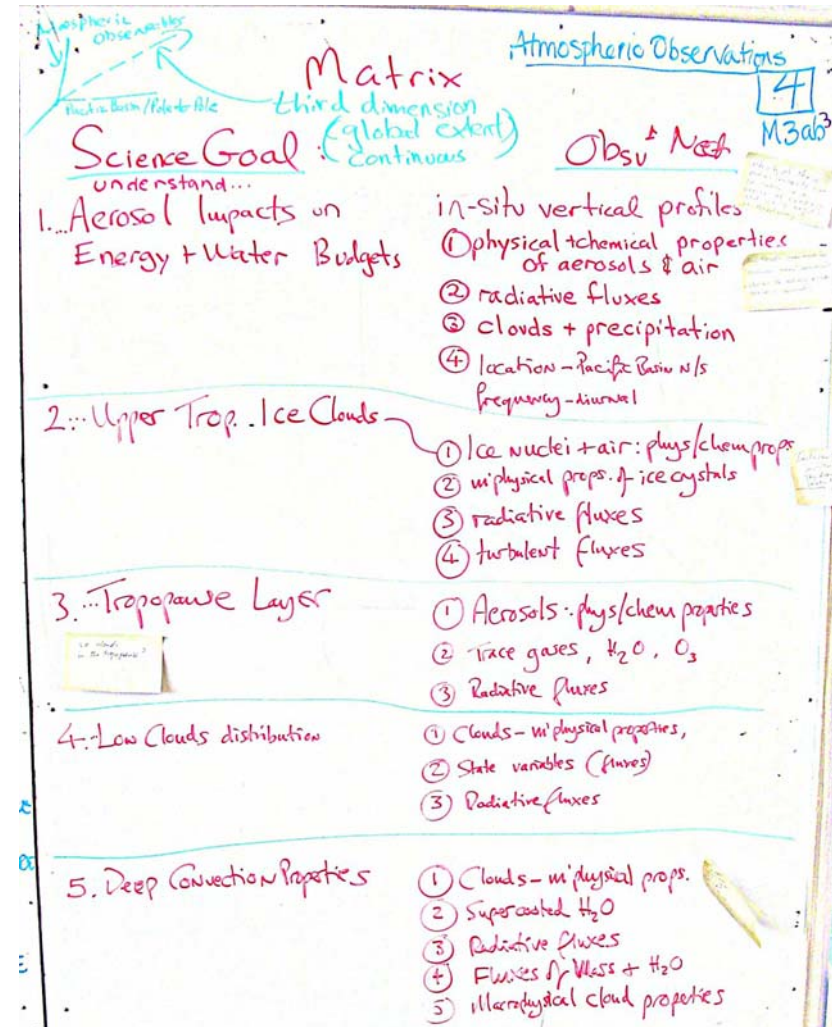 Atmospheric
Observables
Pacific Basin/Pole to Pole
Matrix
third dimension
(global extent)
continuous
Atmospheric Observations
4
M3ab3
Science Goal:
understand...
Obsv'n Need
1...Aerosol Impacts on
Energy + Water Budgets
in-situ vertical profiles
① physical + chemical properties
of aerosols & air
② radiative fluxes
③ clouds + precipitation
④ location - Pacific Basin N/S
frequency - diurnal
2... Upper Trop. Ice Clouds
① Ice nuclei + air: phys/chem props
② m'physical props. of ice crystals
③ radiative fluxes
④ turbulent fluxes
3. ...Tropopause Layer
① Aerosols: phys/chem properties
② Trace gases, H₂O, O₃
③ Radiative fluxes
4...Low Clouds distribution
① Clouds - m'physical properties,
② State variables (fluxes)
③ Radiative fluxes
5. Deep Convection Properties
① Clouds - m'physical props.
② Supercooled H₂O
③ Radiative fluxes
④ Fluxes of Mass + H₂O
⑤ Macrophysical cloud properties